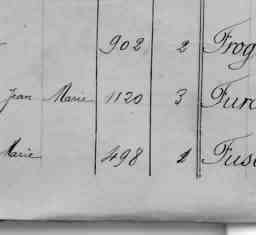 902 2 Frog
Jean Marie 1120 3 Furc
Marie 498 1 Fus